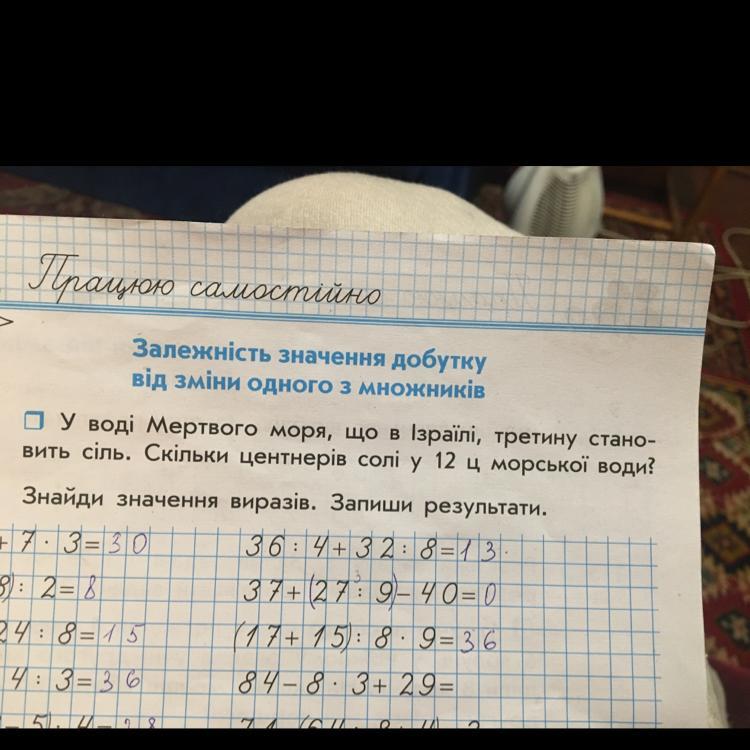 Працюю самостійно
Залежність значення добутку
від зміни одного з множників
У воді Мертвого моря, що в Ізраїлі, третину стано-
вить сіль. Скільки центнерів солі у 12 ц морської води?
Знайди значення виразів. Запиши результати.
+ 7 · 3 = 30
36 : 4 + 32 : 8 = 13
8) : 2 = 8
37 + (27 : 9) – 40 = 0
24 : 8 = 15
(17 + 15) : 8 · 9 = 36
4 : 3 = 36
84 – 8 · 3 + 29 =